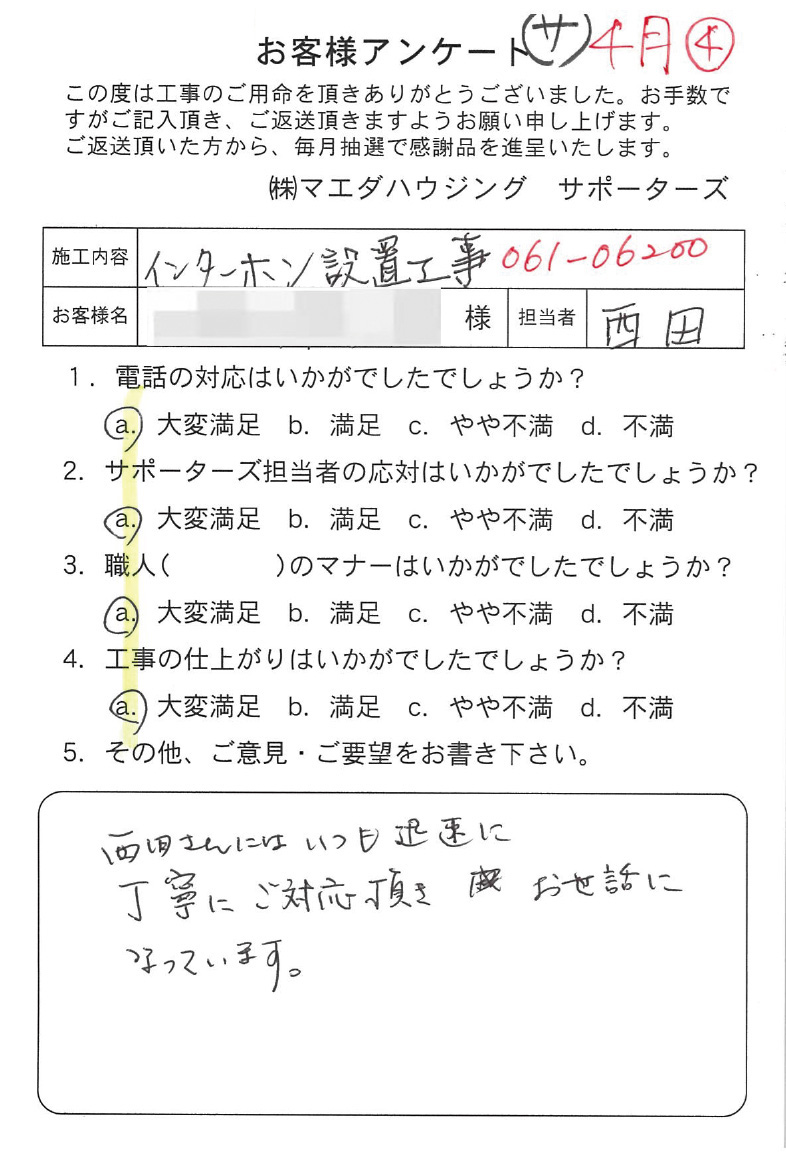 お客様アンケート (サ) 4月 ④
この度は工事のご用命を頂きありがとうございました。お手数で
すがご記入頂き、ご返送頂きますようお願い申し上げます。
ご返送頂いた方から、毎月抽選で感謝品を進呈いたします。
㈱マエダハウジング　サポーターズ
施工内容 インターホン設置工事 061-06200
お客様名 様 担当者 西田
1. 電話の対応はいかがでしたでしょうか？
a. 大変満足 b. 満足 c. やや不満 d. 不満
2. サポーターズ担当者の応対はいかがでしたでしょうか？
a. 大変満足 b. 満足 c. やや不満 d. 不満
3. 職人(　　　　)のマナーはいかがでしたでしょうか？
a. 大変満足 b. 満足 c. やや不満 d. 不満
4. 工事の仕上がりはいかがでしたでしょうか？
a. 大変満足 b. 満足 c. やや不満 d. 不満
5. その他、ご意見・ご要望をお書き下さい。
西田さんにはいつも迅速に
丁寧にご対応頂き お世話に
なっています。